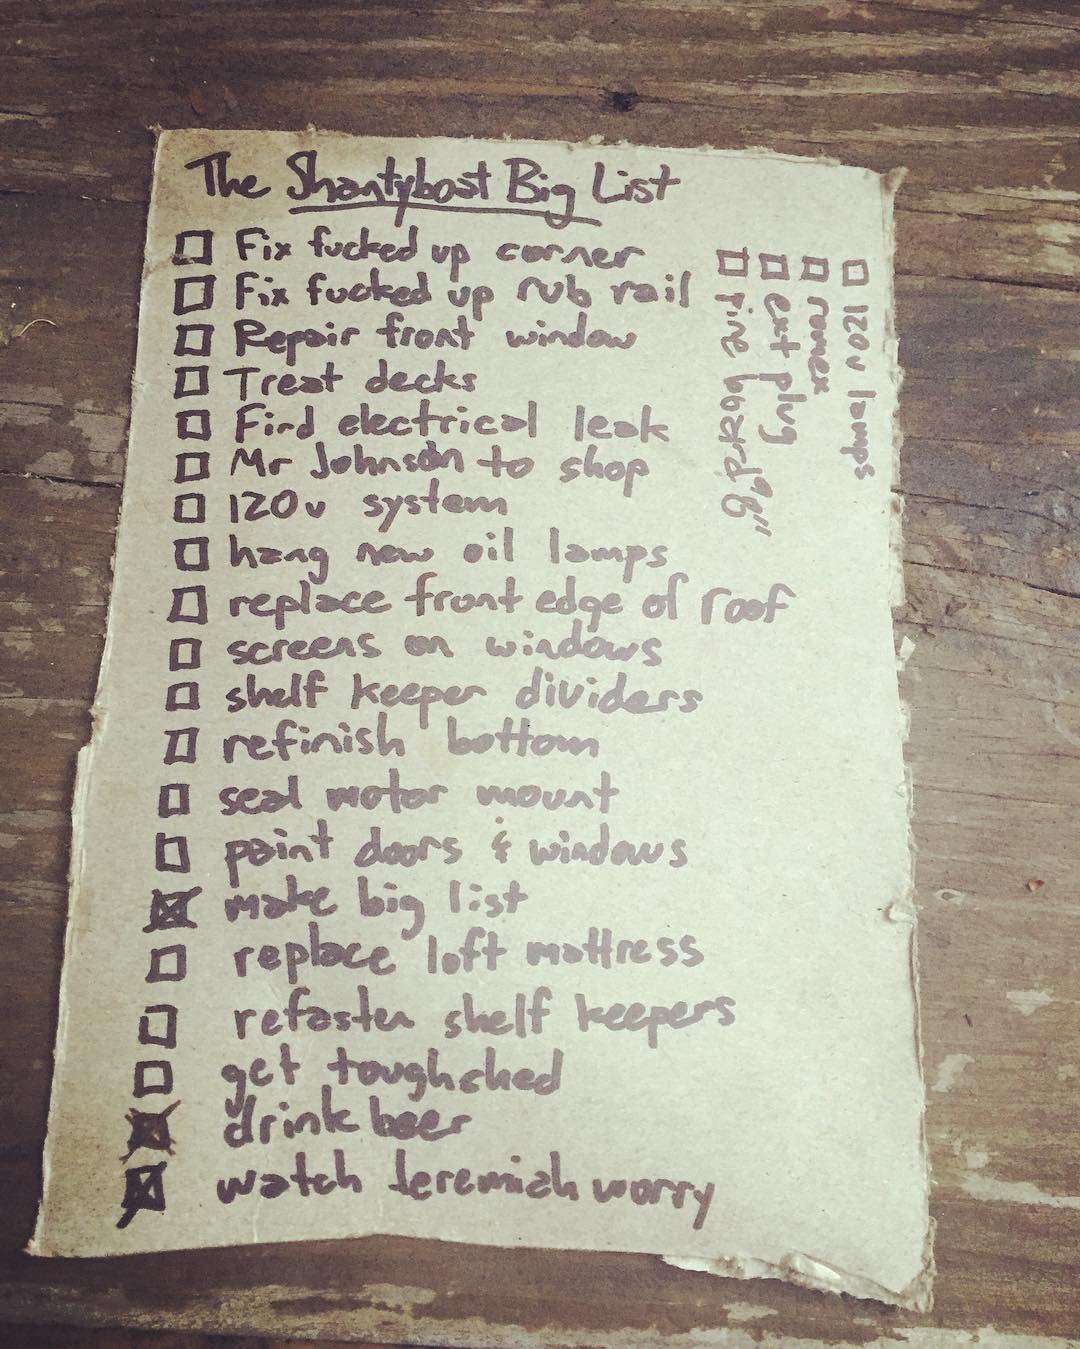 The Shantyboat Big List
Fix fucked up corner
Fix fucked up rub rail
Repair front window
Treat decks
Find electrical leak
Mr Johnson to shop
120v system
hang new oil lamps
replace front edge of roof
screens on windows
shelf keeper dividers
refinish bottom
seal motor mount
paint doors & windows
make big list
replace loft mattress
refasten shelf keepers
get toughshed
drink beer
watch Jeremiah worry
120v lamps
romex
ext plug
fire board 8"